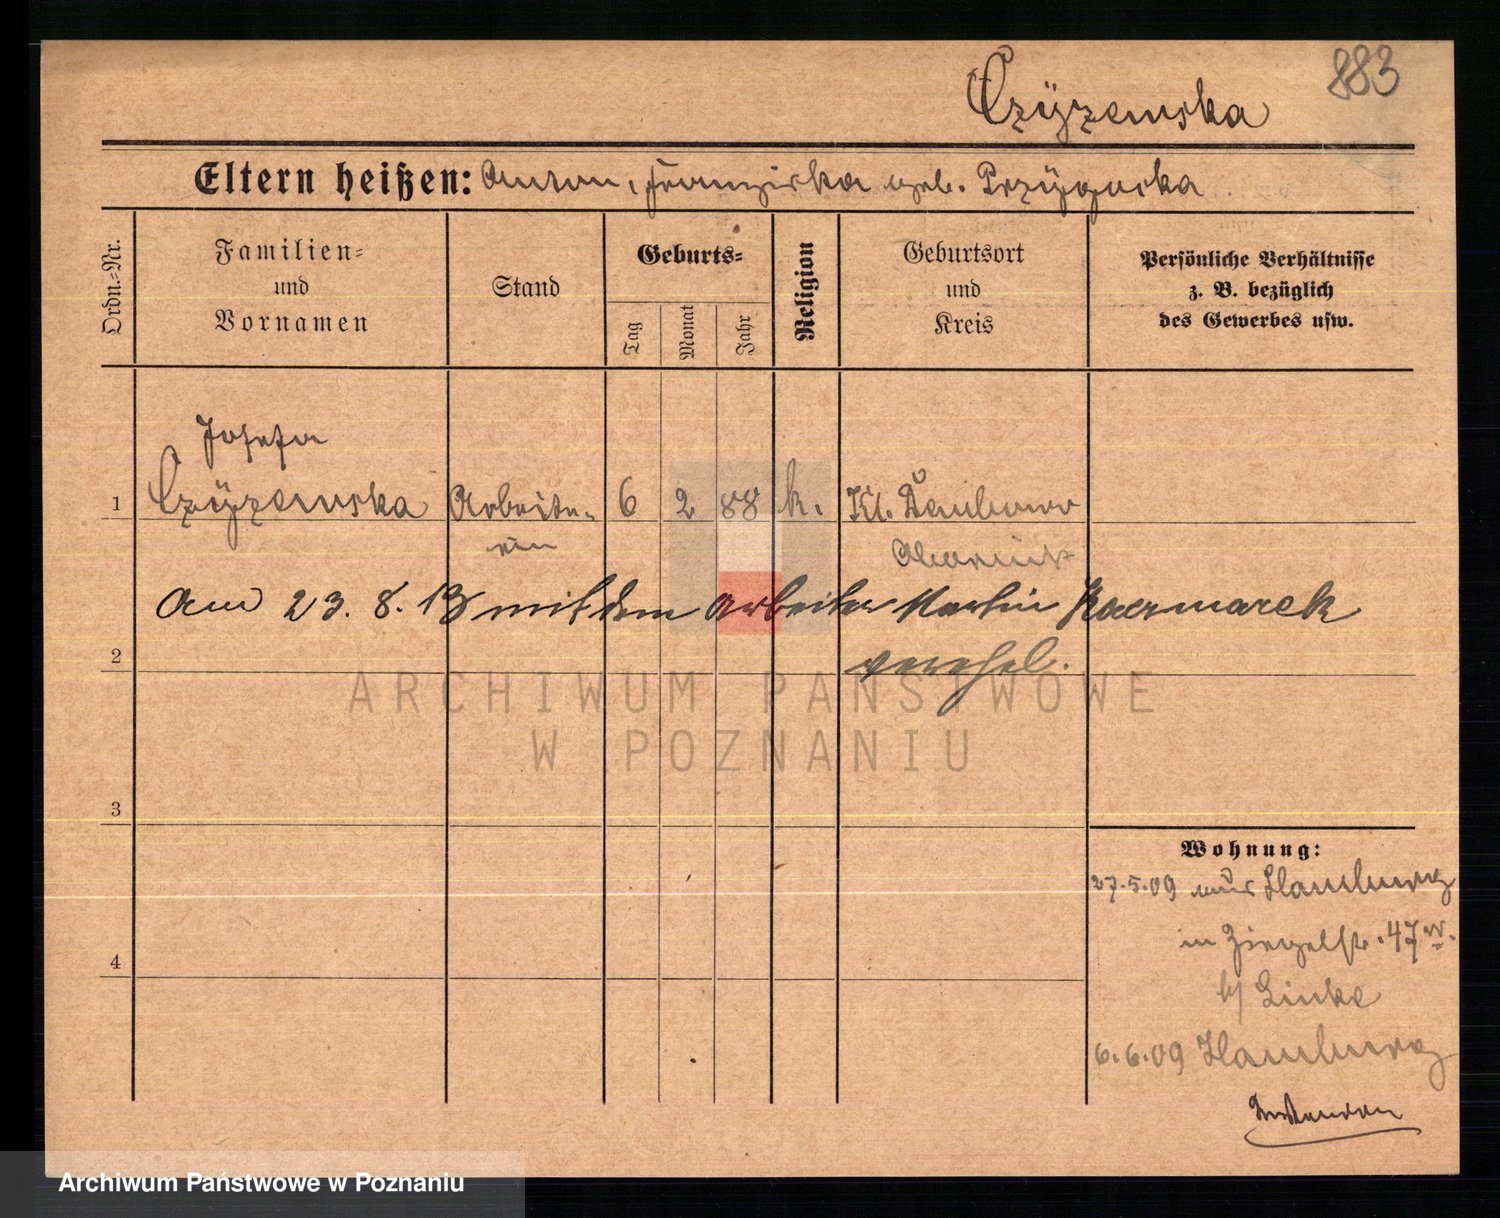 883
Czÿzewska
Eltern heißen: Anton, Franziska geb. Przÿgocka
Ordn.=Nr.
Familien=
und
Vornamen
Stand
Geburts=
Tag
Monat
Jahr
Religion
Geburtsort
und
Kreis
Persönliche Verhältnisse
z. B. bezüglich
des Gewerbes usw.
Josefa
1 Czÿzewska Arbeite= 6 2 88 k. Kl.
rin Obornik
Am 23. 8. 13 mit dem Arbeiter Martin Kaczmarek
2 verehel.
ARCHIWUM PAŃSTWOWE
W POZNANIU
3
Wohnung:
27.5.09 aus Hamburg
in Ziegelstr. 47
4
b/ Linke
6.6.09 Hamburg
Archiwum Państwowe w Poznaniu